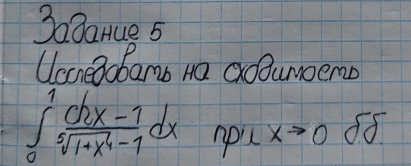 Задание 5
Исследовать на сходимость
∫₀¹ (chx - 1)/(⁵√(1+x⁴) - 1) dx при x → 0 б.б.